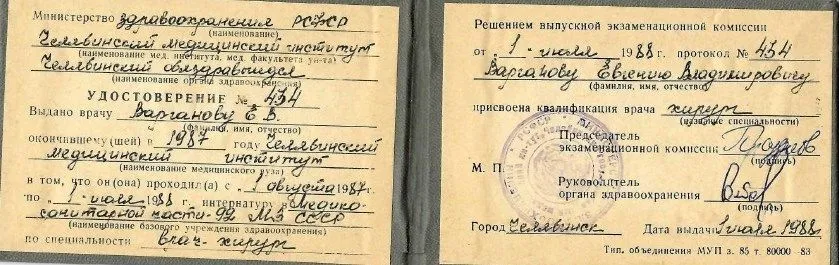 Министерство здравоохранения РСФСР
(наименование)
Челябинский медицинский институт
(наименование мед. института, мед. факультета ун-та)
Челябинский облздравотдел
(наименование органа здравоохранения)
УДОСТОВЕРЕНИЕ № 434
Выдано врачу Варганову Е. В.
(фамилия, имя, отчество)
окончившему(шей) в 1987 году Челябинский
медицинский институт
(наименование медицинского вуза)
в том, что он(она) проходил(а) с 1 августа 1987 г.
по 1 - июля 1988 г. интернатуру в Медико-
санитарной части-92 МЗ СССР
(наименование базового учреждения здравоохранения)
по специальности врач-хирург
Решением выпускной экзаменационной комиссии
от 1 - июля 1988 г. протокол № 434
Варганову Евгению Владимировичу
(фамилия, имя, отчество)
присвоена квалификация врача хирург
(название специальности)
Председатель
экзаменационной комиссии
(подпись)
М. П.
Руководитель
органа здравоохранения
(подпись)
Город Челябинск Дата выдачи 1 июля 1988 г.
Тип. объединения МУП з. 85 т. 80000 - 83